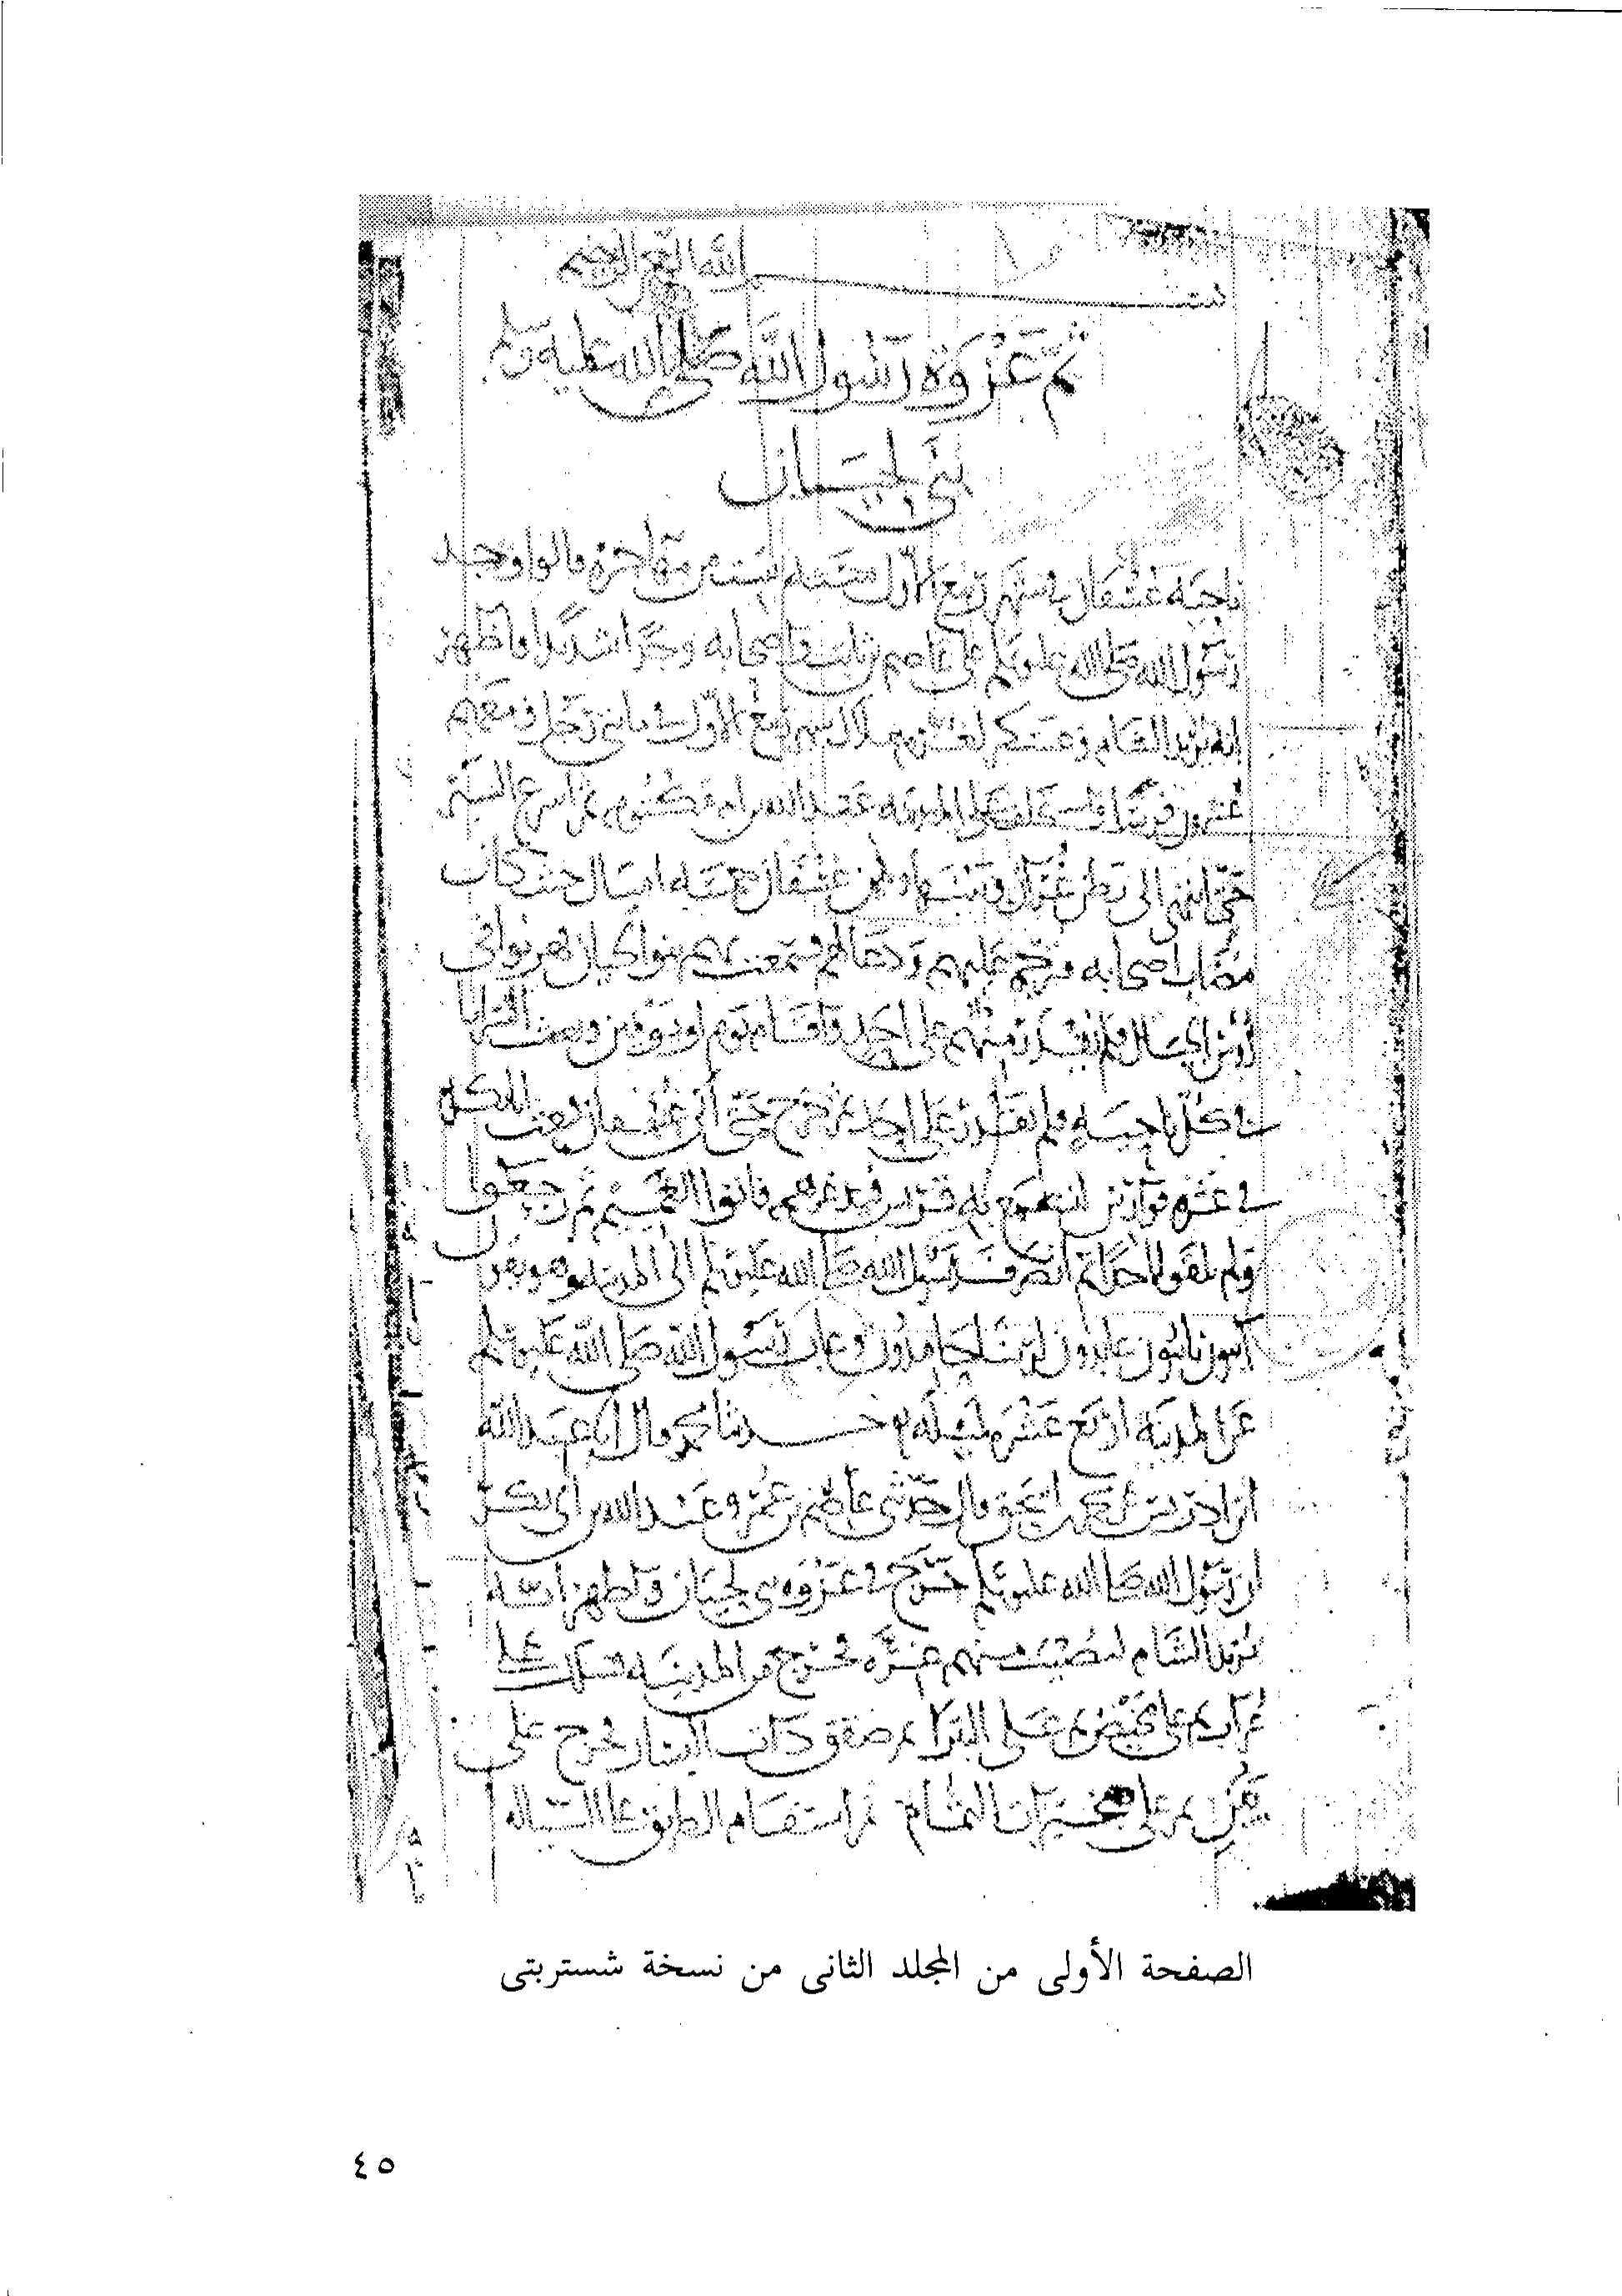 بسم الله الرحمن الرحيم
ثم غزوة رسول الله صلى الله عليه وسلم
بنى لحيان
ناحية عسفان في شهر ربيع الأول سنة ست من مهاجره قالوا وجد
رسول الله صلى الله عليه وسلم على عاصم بن ثابت وأصحابه وجدا شديدا فأظهر
أنه يريد الشام وعسكر لغرة هلال شهر ربيع الأول في مائتي رجل ومعهم
عشرون فرسا واستخلف على المدينة عبد الله بن أم مكتوم ثم أسرع السير
حتى انتهى إلى بطن غران وبينها وبين عسفان خمسة أميال حيث كان
مصاب أصحابه فترحم عليهم ودعا لهم فسمعت بهم بنو لحيان فهربوا في
رؤوس الجبال فلم يقدر منهم على أحد فأقام يوما أو يومين وبعث السرايا
في كل ناحية فلم يقدروا على أحد ثم خرج حتى أتى عسفان فبعث أبا بكر
في عشرة فوارس لتسمع به قريش فيذعرهم فأتوا الغميم ثم رجعوا
ولم يلقوا أحدا ثم انصرف رسول الله صلى الله عليه وسلم إلى المدينة وهو يقول
آيبون تائبون عابدون لربنا حامدون وغاب رسول الله صلى الله عليه وسلم
عن المدينة أربع عشرة ليلة قال أنا عبد الله
ابن ادريس عن محمد بن إسحق قال حدثني عاصم بن عمر وعبد الله بن أبي بكر
أن رسول الله صلى الله عليه وسلم خرج في غزوة بني لحيان وأظهر أنه
يريد الشام ليصيب منهم غرة فخرج من المدينة فسلك على
غراب ثم على مخيض ثم على البتراء ثم صفق ذات اليسار فخرج على
يين ثم على صخيرات الثمام ثم استقام به الطريق على السيالة
الصفحة الأولى من المجلد الثانى من نسخة شستربتى
٤٥